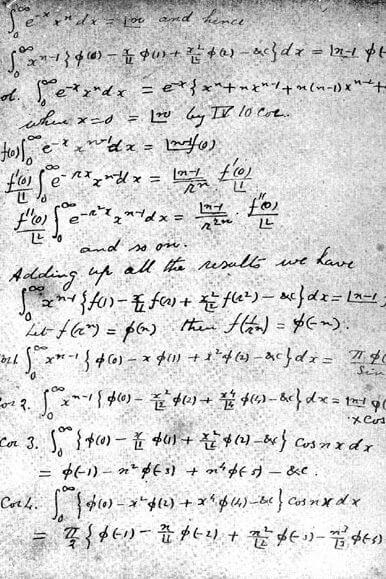 ∫₀^∞ e^{-x} x^n dx = |n and hence
∫₀^∞ x^{n-1} {φ(0) − x/|1 φ(1) + x²/|2 φ(2) − &c} dx = |n-1 φ(-
ol. ∫₀^∞ e^{-x} x^n dx = e^{-x} {x^n + n x^{n-1} + n(n-1) x^{n-2} +
when x=0 = |n by IV 10 cor.
f(0) ∫₀^∞ e^{-x} x^{n-1} dx = |n-1 f(0)
f'(0)/|1 ∫₀^∞ e^{-rx} x^{n-1} dx = |n-1/r^n · f'(0)/|1
f''(0)/|2 ∫₀^∞ e^{-r²x} x^{n-1} dx = |n-1/r^{2n} · f''(0)/|2
and so on.
Adding up all the results we have
∫₀^∞ x^{n-1} {f(1) − x/|1 f(r) + x²/|2 f(r²) − &c} dx = |n-1
Let f(r^n) = φ(n) then f(1/r^n) = φ(-n).
or 1 ∫₀^∞ x^{n-1} {φ(0) − x φ(1) + x² φ(2) − &c} dx = π φ( / Sin
or 2. ∫₀^∞ x^{n-1} {φ(0) − x²/|2 φ(2) + x⁴/|4 φ(4) − &c} dx = |n-1 φ( × Cos
Cor 3. ∫₀^∞ {φ(0) − x/|1 φ(1) + x²/|2 φ(2) − &c} Cos nx dx
= φ(-1) − n² φ(-3) + n⁴ φ(-5) − &c.
Cor 4. ∫₀^∞ {φ(0) − x² φ(2) + x⁴ φ(4) − &c} cos nx dx
= π/2 {φ(-1) − n/|1 φ(-2) + n²/|2 φ(-3) − n³/|3 φ(-4)